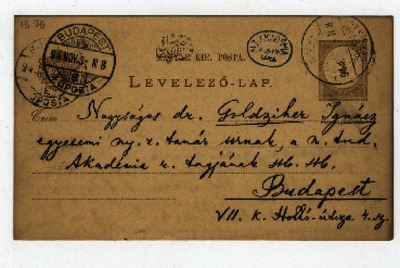 18.70
BUDAPEST
MAGYAR KIR. POSTA.
LEVELEZŐ-LAP.
Czím
Nagyságos dr. Goldziher Ignácz
egyetemi ny. r. tanár urnak, a m. tud.
Akadémia r. tagjának stb. stb.
Budapest
VII. k. Holló-utcza 4. sz.